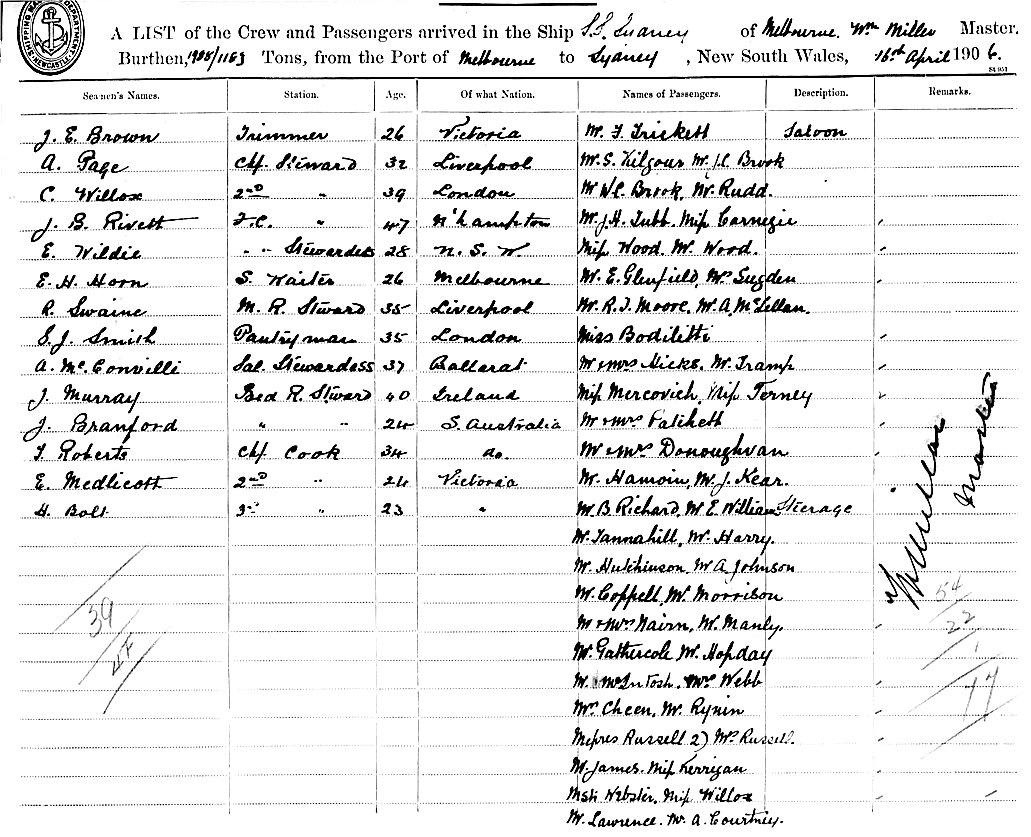 A LIST of the Crew and Passengers arrived in the Ship S.S. Sydney of Melbourne. Wm Millar Master,
Burthen, 1908/1163 Tons, from the Port of Melbourne to Sydney, New South Wales, 16th April 1906.
Seamen's Names. Station. Age. Of what Nation. Names of Passengers. Description. Remarks.
J. E. Brown Trimmer 26 Victoria Mr. F. Triskett Saloon
A. Page Chf. Steward 32 Liverpool Mr. S. Kilgour Mr. J.C. Brook
C. Willox 2nd " 39 London Mr W.C. Brook, Mr. Rudd.
J. B. Rivett F.C. " 47 N'hampton Mr. J.H. Tubb. Miss Carnegie
E. Wildie " " Stewardess 28 N. S. W. Miss Wood. Mr. Wood.
E. H. Horn S. Waiter 26 Melbourne Mr. E. Glenfield, Mrs Sugden
R. Swaine M. R. Steward 35 Liverpool Mr. R. J. Moore. Mr. A. McLellan.
S. J. Smith Pantryman 35 London Miss Bodiletti
A. McConvilli Sal. Stewardess 37 Ballarat Mr & Mrs Hicks. Mr. Tramp
J. Murray Bed R. Steward 40 Ireland Miss Mercovich, Miss Ferney
J. Branford " " 24 S. Australia Mr & Mrs Patchett
T. Roberts Chf. Cook 34 do. Mr & Mrs Donoughvan
E. Medlicott 2nd " 24 Victoria Mr. Hamoin, Mr. J. Kear.
H. Bolt 3rd " 23 " Mr. B. Richard, Mr. E. William Steerage
Mr. Tannahill, Mr. Harry.
Mr. Hutchinson. Mr A. Johnson
Mr. Coppell, Mr. Morrison
Mr & Mrs Nairn, Mr. Manly.
Mr. Gathercole Mr. Hopday
Mr. McIntosh. Mrs Webb
Mrs Cheen, Mr. Rynin
Misses Russell 2) Mrs Russell.
Mr. James. Miss Kerrigan
Mstr Webster. Miss Willox
Mr. Lawrence. Mr. A. Courtney.
WmMillar
Master
39
54
22
1
77